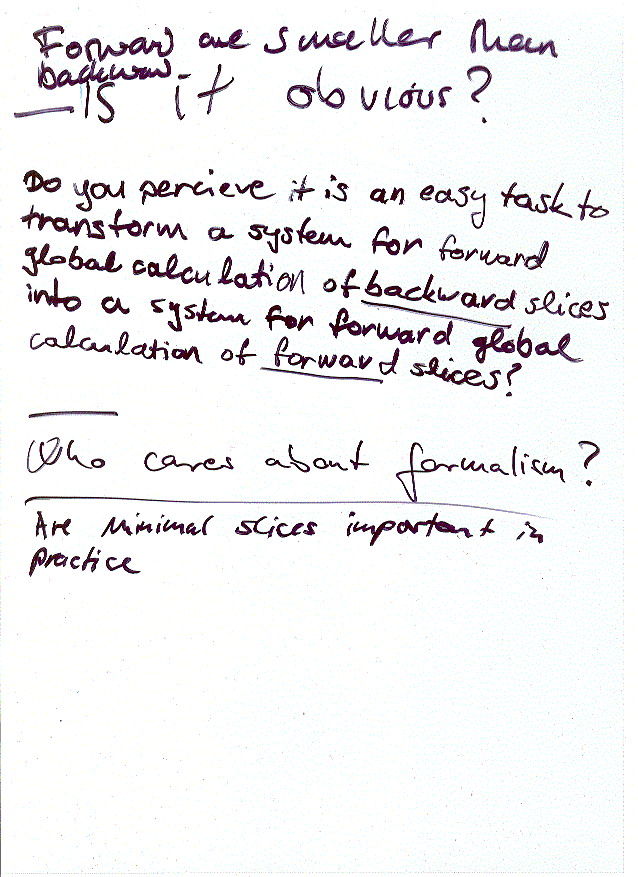 Forward are smaller than
backward
Is it obvious?
Do you percieve it is an easy task to
transform a system for forward
global calculation of backward slices
into a system for forward global
calculation of forward slices?
Who cares about formalism?
Are minimal slices important in
practice